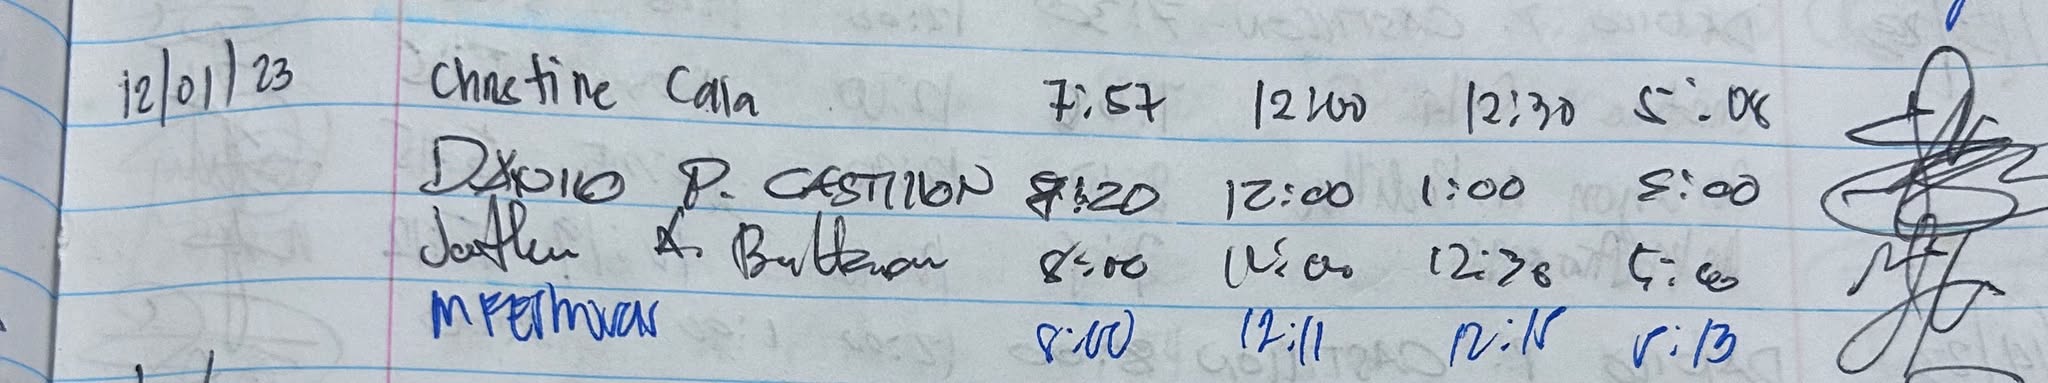 12/01/23 Christine Cala 7:57 12:00 12:30 5:08
P. CASTILLON 8:20 12:00 1:00 5:00
A. 8:00 12:00 12:30 5:00
8:00 12:11 12:15 5:13